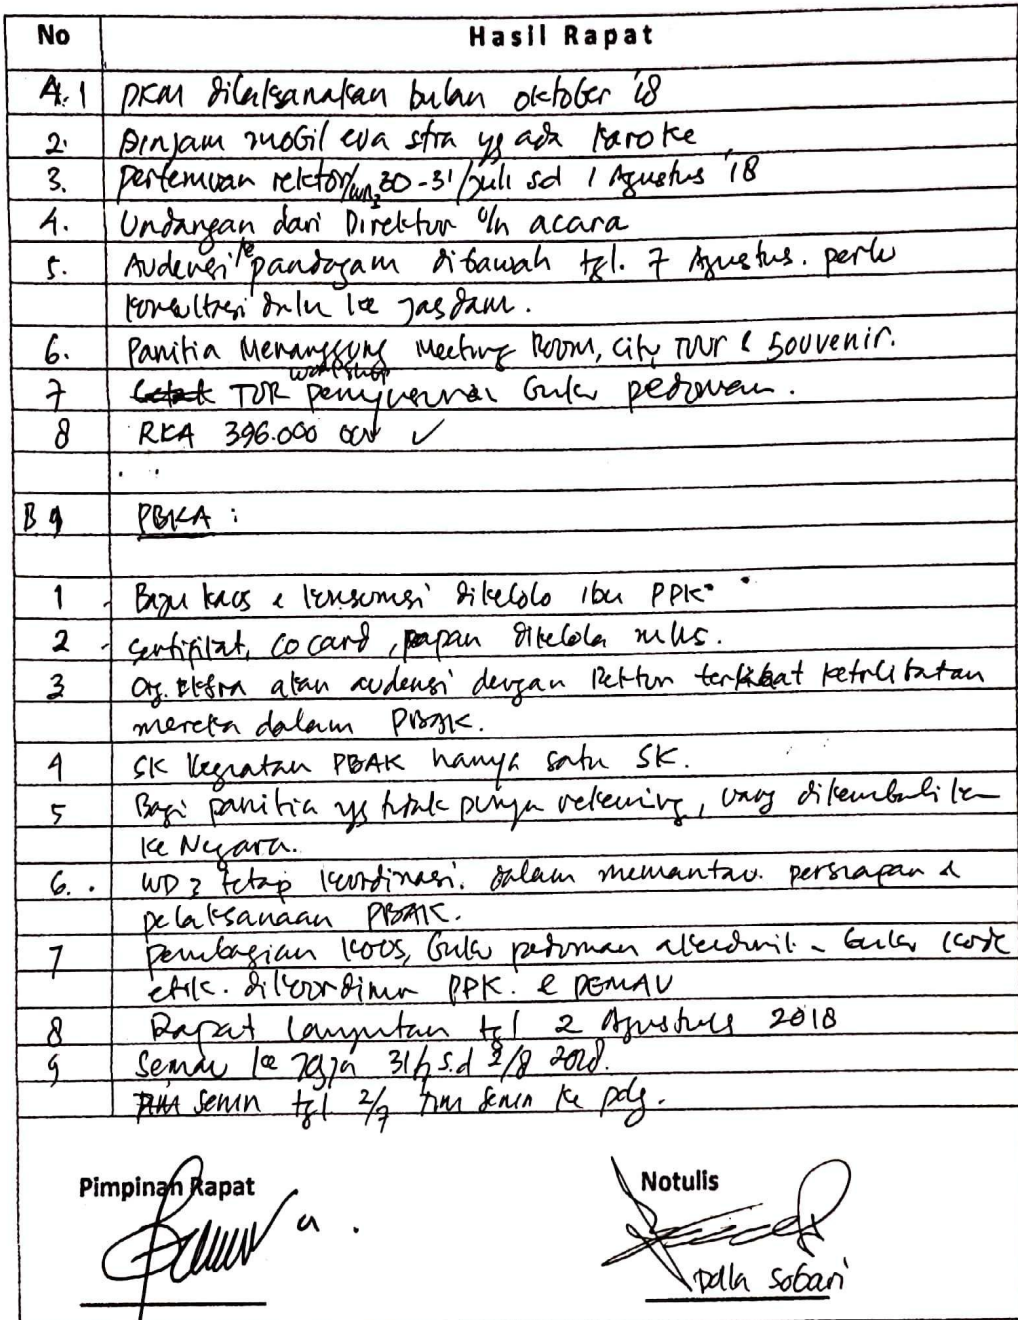 No Hasil Rapat
A.1 PKM dilaksanakan bulan oktober '18
2. Pinjam mobil eva stra yg ada karoke
3. pertemuan rektor/WR3 30-31/juli sd 1 Agustus '18
4. Undangan dari Direktur u/n acara
5. Audensi ke pandagam dibawah tgl. 7 Agustus. perlu
konsultasi dulu ke jasdam.
6. Panitia Menanggung Meeting Room, City Tour & Souvenir.
7 TOR workshop penyusunan buku pedoman.
8 RKA 396.000 000 ✓
B 1 PBKA :
1 Baju kaos & konsumsi dikelola ibu PPK
2 Sertifikat, co card, papan dikelola
3 Org. Ekstra akan audensi dengan Rektor terkait keterlibatan
mereka dalam PBAK.
4 SK kegiatan PBAK hanya satu SK.
5 Bagi panitia yg tidak punya rekening, uang dikembalikan
ke Negara.
6. WD 3 tetap koordinasi. dalam memantau persiapan &
pelaksanaan PBAK.
7 pembagian kaos, buku pedoman akademik - buku kode
etik. dikoordinir PPK. & DEMA U
8 Rapat lanjutan tgl 2 Agustus 2018
9 Semau ke Jogja 31/7 s.d 2/8 2018.
senin tgl 2/7 senin ke pdg.
Pimpinan Rapat Notulis
Sobari